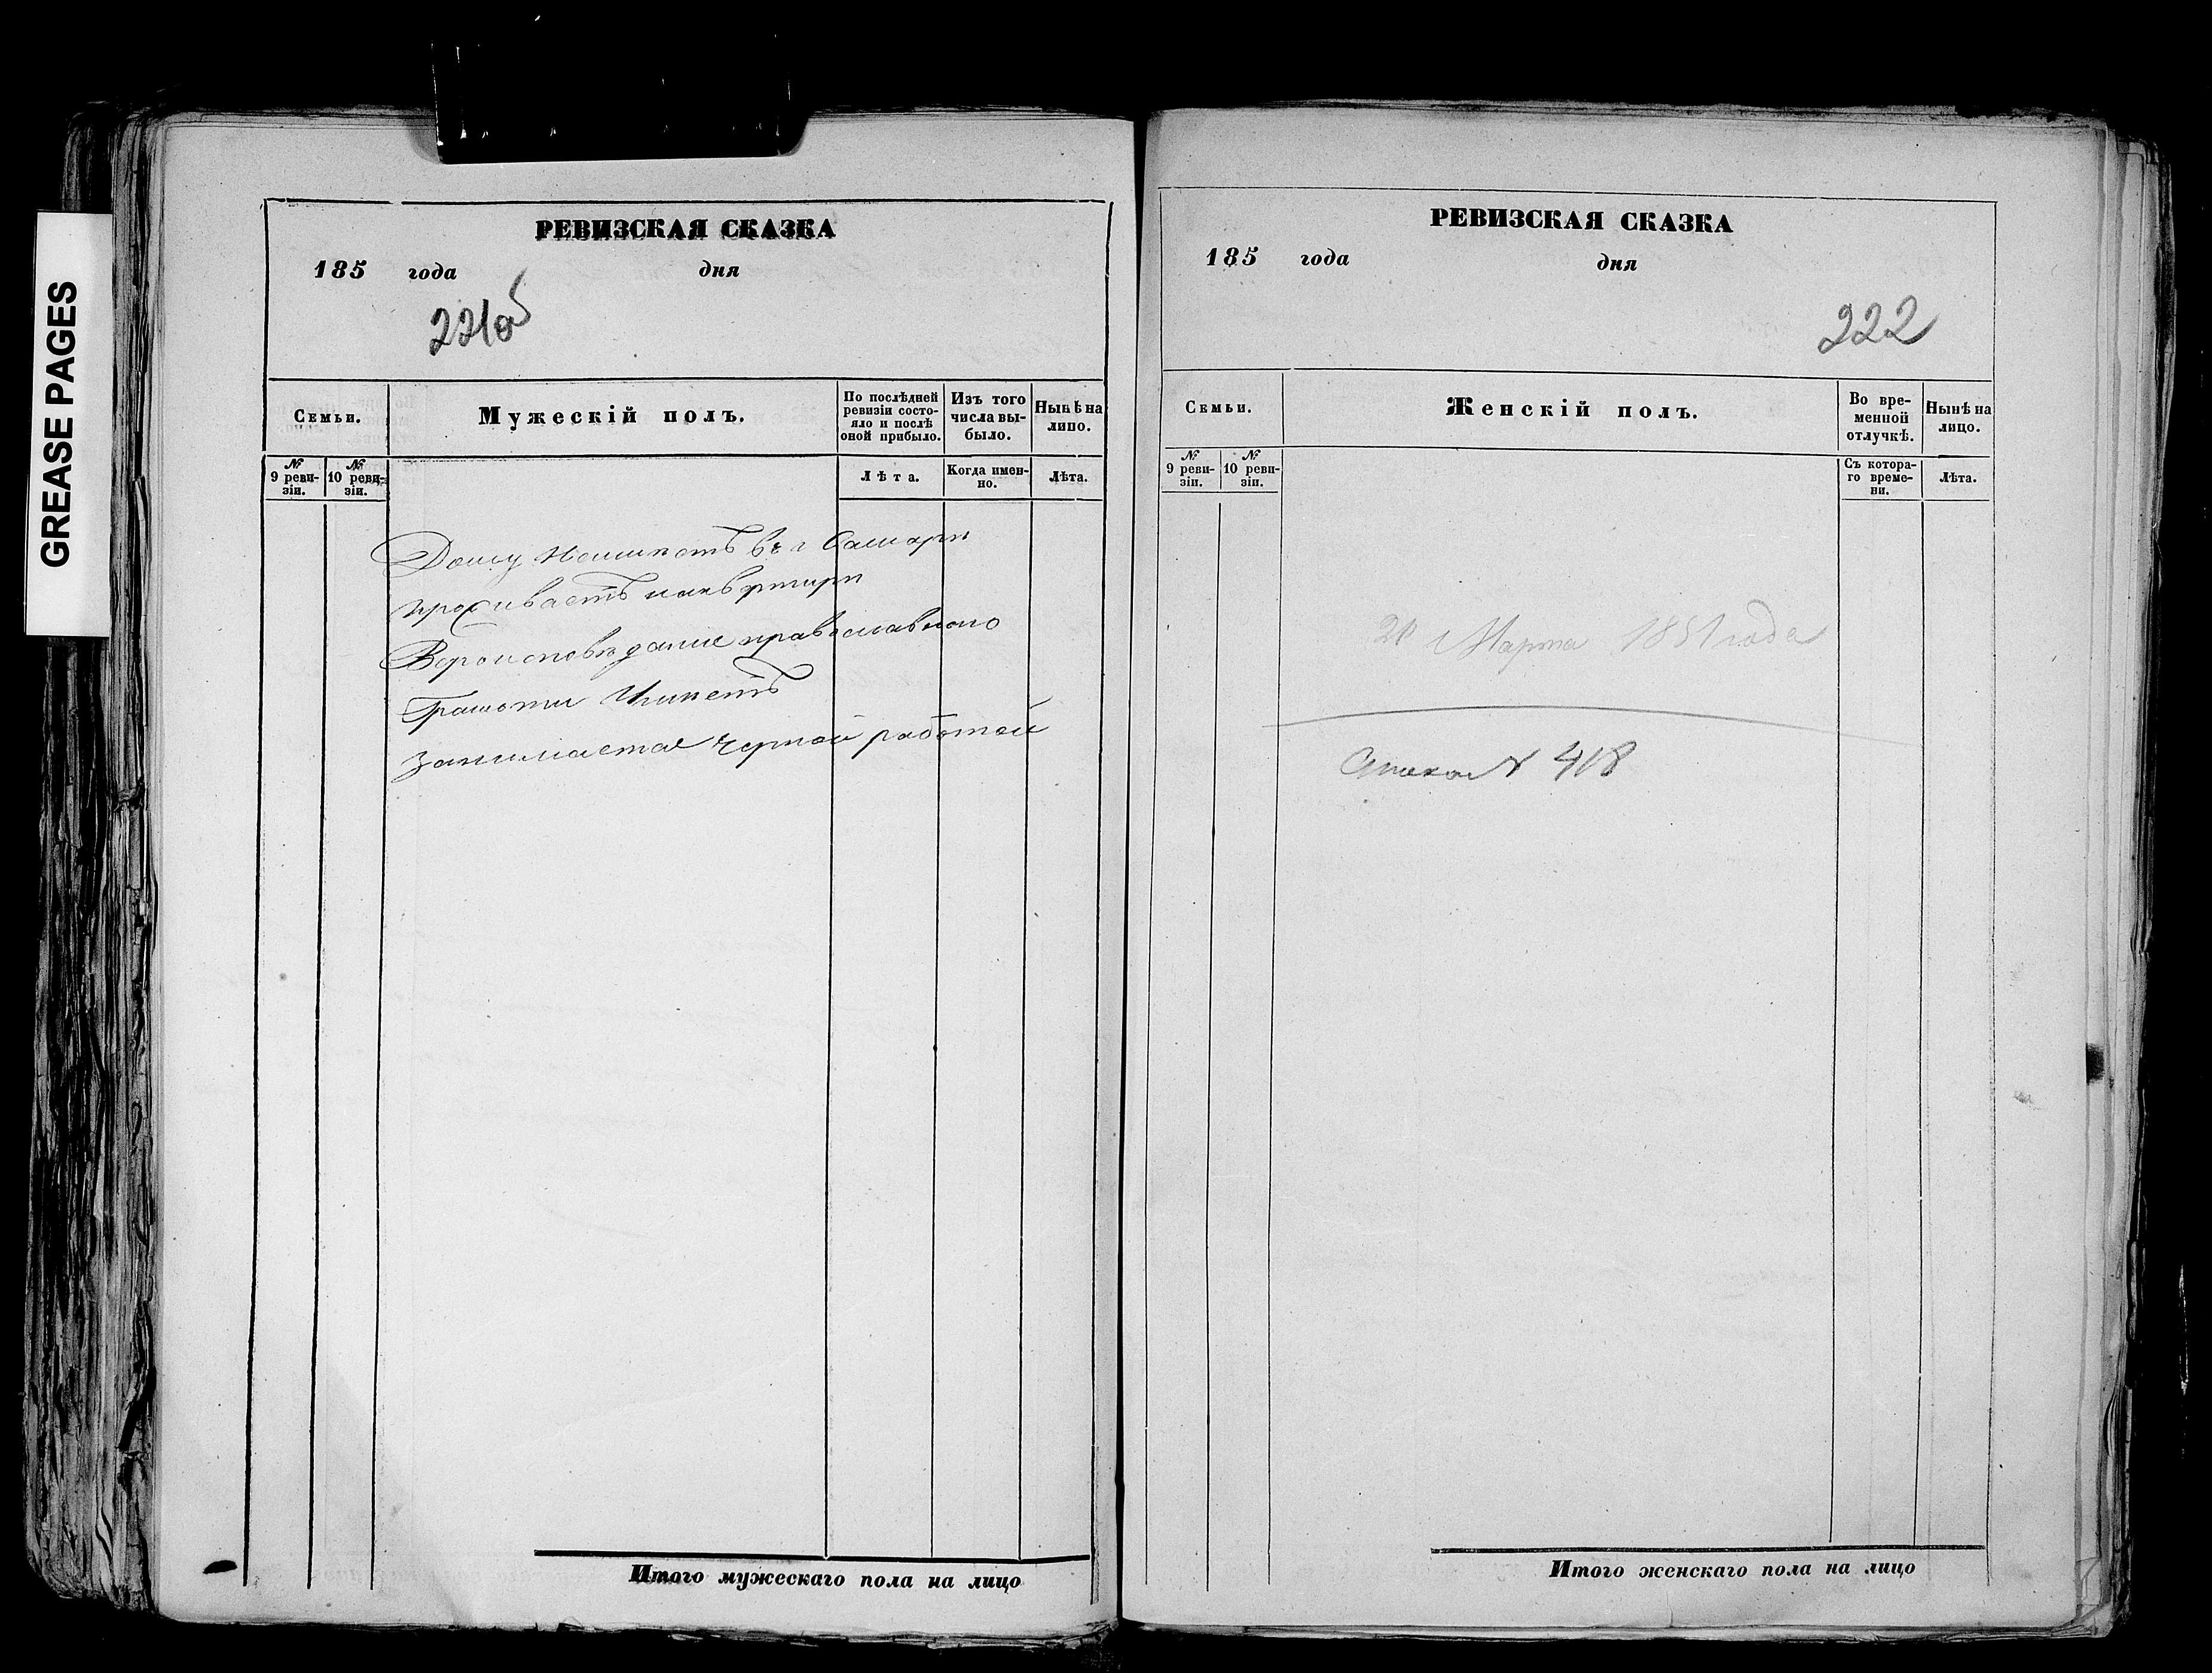 GREASE PAGES
РЕВИЗСКАЯ СКАЗКА
185 года дня
221об
Семьи.
Мужескій полъ.
По послѣдней ревизіи состо-
яло и послѣ оной прибыло.
Изъ того числа вы-
было.
Нынѣ на лицо.
№ 9 реви-
зіи.
№ 10 реви-
зіи.
Лѣта.
Когда имен-
но.
Лѣта.
Дому Неимеетъ въ г Самари
проживаетъ наквртири
Вероисповѣдание православного
Грамоти Ниметъ
занимается черной работой
Итого мужескаго пола на лицо
РЕВИЗСКАЯ СКАЗКА
185 года дня
222
Семьи.
Женскій полъ.
Во вре-
менной
отлучкѣ.
Нынѣ на
лицо.
№ 9 реви-
зіи.
№ 10 реви-
зіи.
Съ котора-
го време-
ни.
Лѣта.
Марта 1851 года
№ 418
Итого женскаго пола на лицо